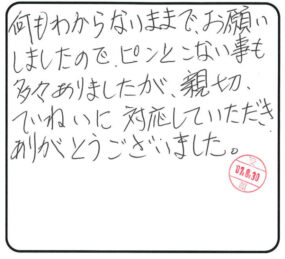 何もわからないままで、お願い
しましたので、ピンとこない事も
多々ありましたが、親切、
ていねいに 対応していただき
ありがとうございました。